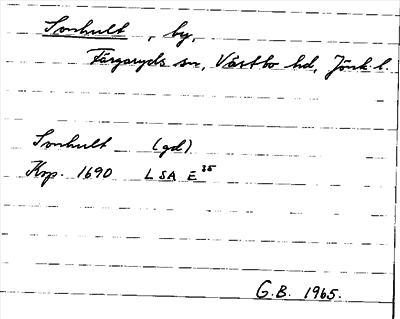 Sonhult, by,
Färgaryds sn, Västbo hd, Jönk. l.
Sonhult (gd)
Krp. 1690 LSA E 35
G.B. 1965.